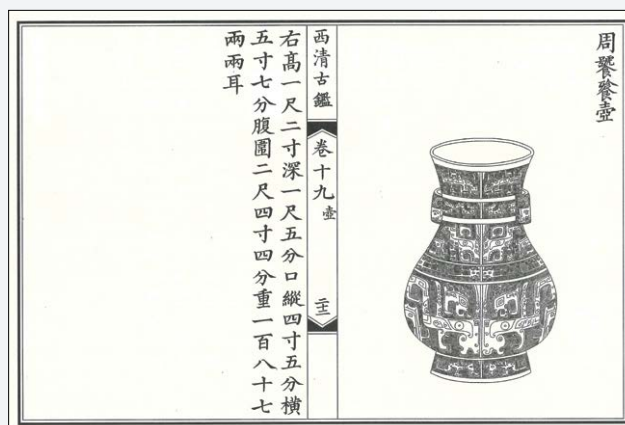 周饕餮壺
西清古鑑
卷十九 壺
二十二
右高一尺二寸深一尺五分口縱四寸五分橫
五寸七分腹圍二尺四寸四分重一百八十七
兩兩耳